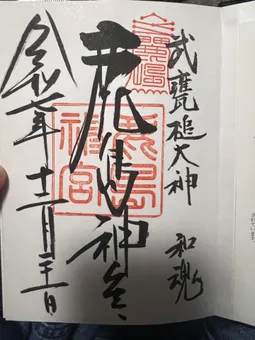 武甕槌大神 和魂
鹿島神宮
鹿島
神宮
令和七年十二月